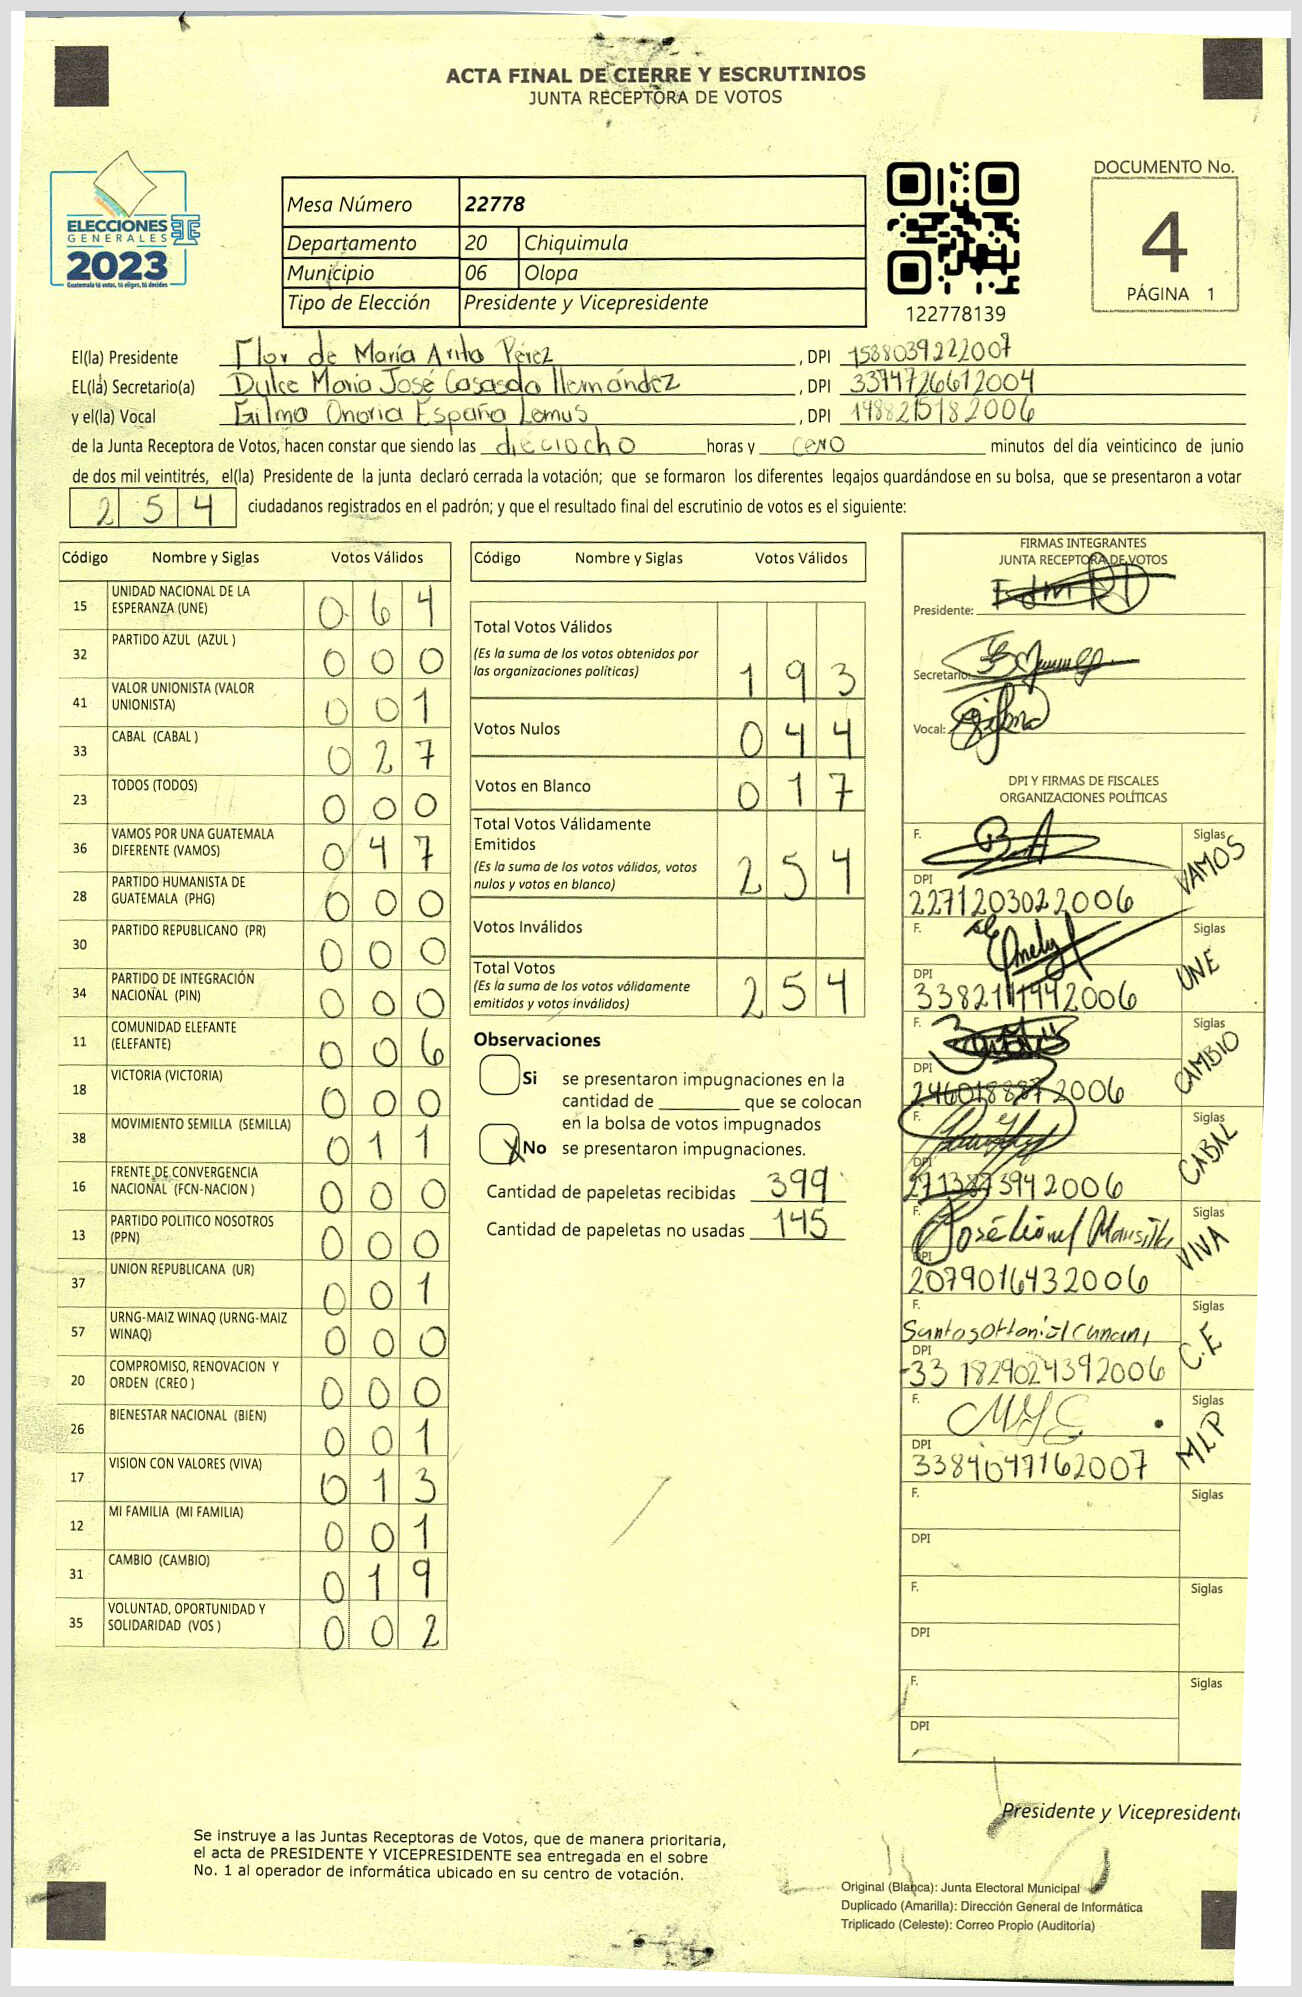 ACTA FINAL DE CIERRE Y ESCRUTINIOS
JUNTA RECEPTORA DE VOTOS
DOCUMENTO No.
4
PÁGINA 1
ELECCIONES
GENERALES
2023
Guatemala tú votas, tú eliges, tú decides
Mesa Número 22778
Departamento 20 Chiquimula
Municipio 06 Olopa
Tipo de Elección Presidente y Vicepresidente
122778139
El(la) Presidente Flor de María Arita Pérez, DPI 1538039222007
EL(la) Secretario(a) Dulce María José Casasola Hernández, DPI 3374726612004
y el(la) Vocal Gilma Onoria España Lemus, DPI 1498821582006
de la Junta Receptora de Votos, hacen constar que siendo las dieciocho horas y cero minutos del día veinticinco de junio
de dos mil veintitrés, el(la) Presidente de la junta declaró cerrada la votación; que se formaron los diferentes legajos guardándose en su bolsa, que se presentaron a votar
254 ciudadanos registrados en el padrón; y que el resultado final del escrutinio de votos es el siguiente:
Código Nombre y Siglas Votos Válidos
15 UNIDAD NACIONAL DE LA ESPERANZA (UNE) 064
32 PARTIDO AZUL (AZUL ) 000
41 VALOR UNIONISTA (VALOR UNIONISTA) 001
33 CABAL (CABAL ) 027
23 TODOS (TODOS) 000
36 VAMOS POR UNA GUATEMALA DIFERENTE (VAMOS) 047
28 PARTIDO HUMANISTA DE GUATEMALA (PHG) 000
30 PARTIDO REPUBLICANO (PR) 000
34 PARTIDO DE INTEGRACIÓN NACIONAL (PIN) 000
11 COMUNIDAD ELEFANTE (ELEFANTE) 006
18 VICTORIA (VICTORIA) 000
38 MOVIMIENTO SEMILLA (SEMILLA) 011
16 FRENTE DE CONVERGENCIA NACIONAL (FCN-NACION ) 000
13 PARTIDO POLITICO NOSOTROS (PPN) 000
37 UNION REPUBLICANA (UR) 001
57 URNG-MAIZ WINAQ (URNG-MAIZ WINAQ) 000
20 COMPROMISO, RENOVACION Y ORDEN (CREO ) 000
26 BIENESTAR NACIONAL (BIEN) 001
17 VISION CON VALORES (VIVA) 013
12 MI FAMILIA (MI FAMILIA) 001
31 CAMBIO (CAMBIO) 019
35 VOLUNTAD, OPORTUNIDAD Y SOLIDARIDAD (VOS ) 002
Código Nombre y Siglas Votos Válidos
Total Votos Válidos
(Es la suma de los votos obtenidos por las organizaciones políticas) 193
Votos Nulos 044
Votos en Blanco 017
Total Votos Válidamente Emitidos
(Es la suma de los votos válidos, votos nulos y votos en blanco) 254
Votos Inválidos
Total Votos
(Es la suma de los votos válidamente emitidos y votos inválidos) 254
Observaciones
Si se presentaron impugnaciones en la
cantidad de que se colocan
en la bolsa de votos impugnados
X No se presentaron impugnaciones.
Cantidad de papeletas recibidas 399
Cantidad de papeletas no usadas 145
FIRMAS INTEGRANTES
JUNTA RECEPTORA DE VOTOS
Presidente:
Secretario:
Vocal:
DPI Y FIRMAS DE FISCALES
ORGANIZACIONES POLÍTICAS
F. Siglas VAMOS
DPI 2271203022006
F. Siglas UNE
DPI
F. Siglas CAMBIO
DPI
F. Siglas CABAL
DPI
F. José Lionel Siglas VIVA
DPI 2079016432006
F. Santos Siglas C.E
DPI 331829024392006
F. Siglas MLP
DPI 3384047162007
F. Siglas
DPI
F. Siglas
DPI
F. Siglas
DPI
Presidente y Vicepresidente
Se instruye a las Juntas Receptoras de Votos, que de manera prioritaria,
el acta de PRESIDENTE Y VICEPRESIDENTE sea entregada en el sobre
No. 1 al operador de informática ubicado en su centro de votación.
Original (Blanca): Junta Electoral Municipal
Duplicado (Amarilla): Dirección General de Informática
Triplicado (Celeste): Correo Propio (Auditoría)